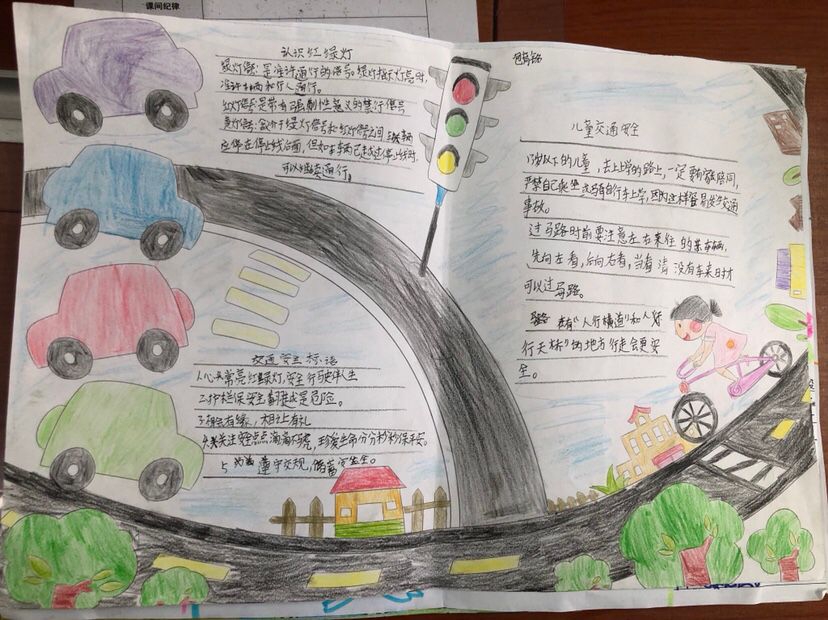 课间纪律
认识红绿灯
绿灯信号：是准许通行的信号。绿灯指示灯亮时，
准许车辆和行人通行。
红灯信号是带有强制性意义的禁行信号
黄灯信号：介于绿灯信号和红灯信号之间
应停在停止线后面，但如车辆已越过停止线时，
可以继续通行。
交通安全标语
1.心头常亮红绿灯，安全行驶伴人生
2.护栏保安全翻越是危险。
3.相会有缘，相让有礼
4.关注安全点点滴滴不马虎，珍爱生命分分秒秒保平安。
5 遵守交规，
儿童交通安全
以下的儿童，去上学的路上，一定要家长陪同，
严禁自己乘坐或骑自行车上学，因为这样容易发生交通
事故。
过马路时前要注意左右来往的车辆，
先向左看，后向右看，当看清没有车来时才
可以过马路。
在有“人行横道”和人行
行天桥”的地方行走会更安
全。